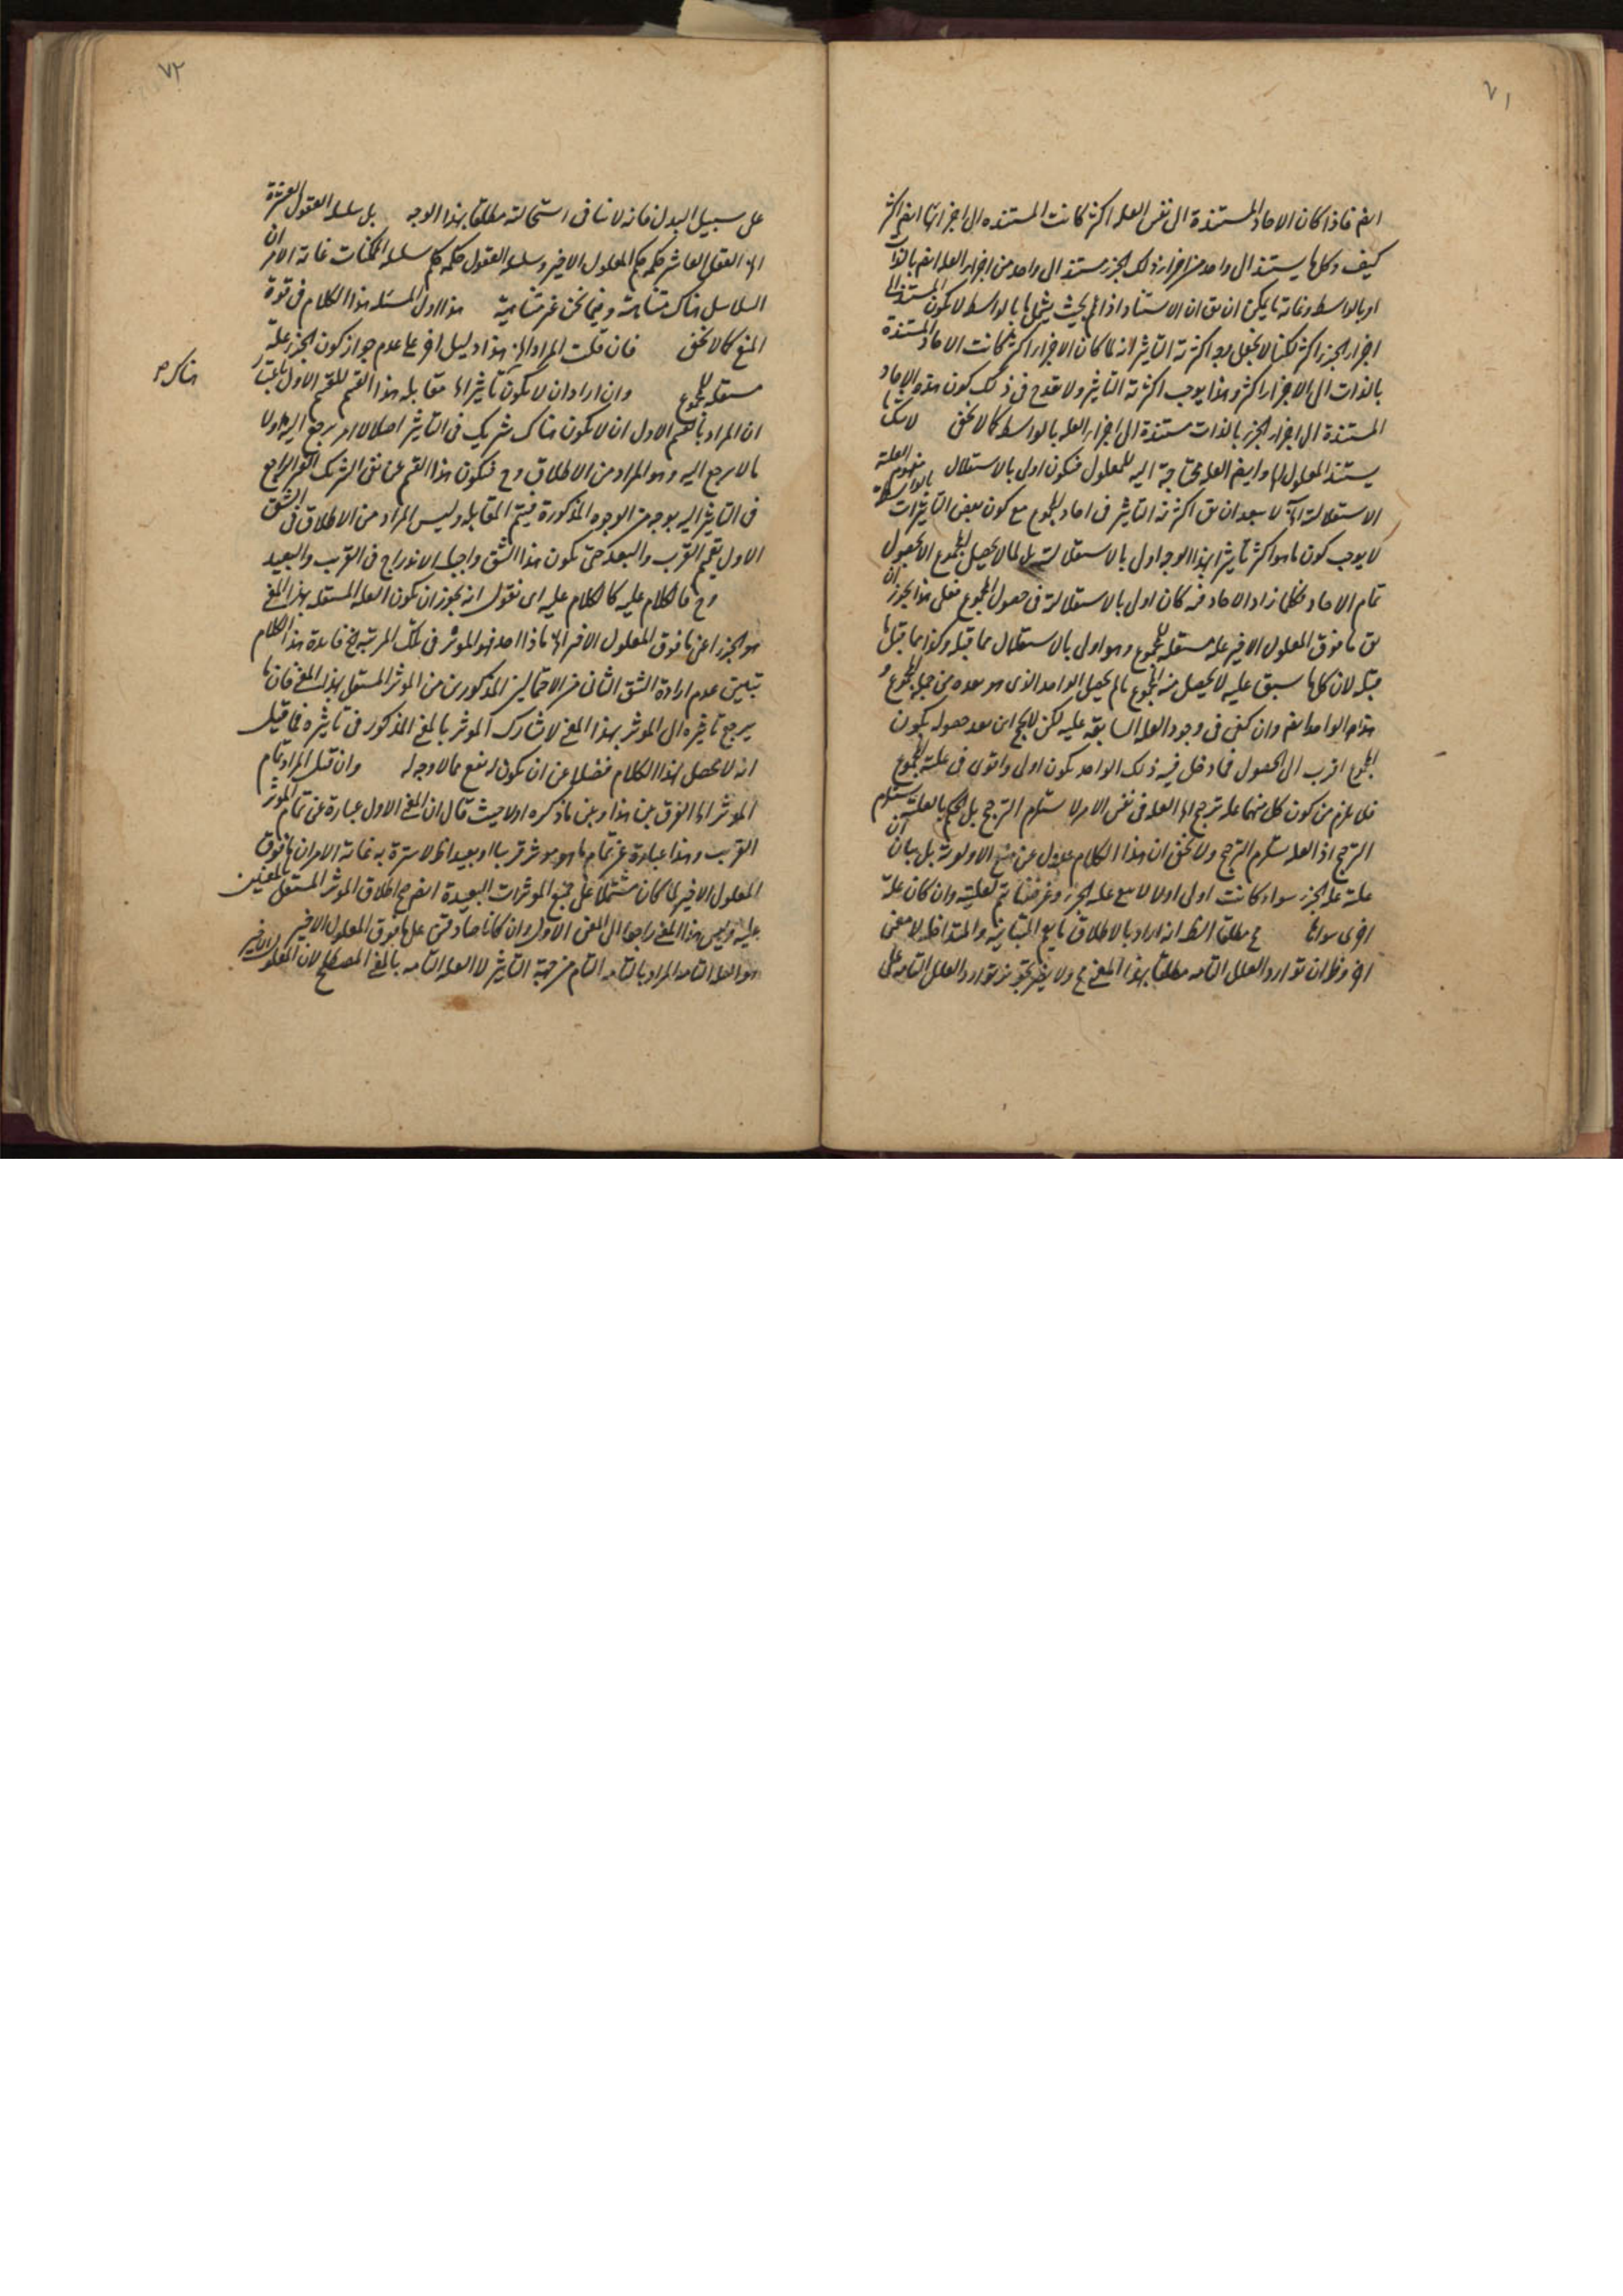 ٧١
ايض فاذا كان الاحاد المستندة الى نفس العلة اكثر كانت المستنده الى اجزائها ايض اكثر
كيف وكلما يستند الى واحد من اجزاء ذلك الجزء مستند الى واحد من اجزاء العلة ايض بالذات
او بالواسطة وغاية ما يمكن ان يق ان الاستناد اذا اخذ بحيث يشمل ما بالواسطة لا يكون المستند الى
اجزاء الجزء اكثر لكنا لا نجعل وجه اكثرية التاثير انه لما كان الاجزاء اكثر كانت الاحاد المستندة
بالذات الى الاجزاء اكثر وهذا يوجب اكثرية التاثير ولا يقدح في ذلك كون هذه الاحاد
المستندة الى اجزاء الجزء بالذات مستندة الى اجزاء العلة بالواسطة كما لا يخفى
يستند المعلول اليها وايض العلة محتاجة اليه للمعلول فيكون اولى بالاستقلال مفهوم العلية
الاستقلالية لا يبعد ان يق اكثرية التاثير في احاد المجموع مع كون بعض التاثيرات بالواسطة
لا يوجب كون ما هو اكثر تاثيرا بهذا الوجه اولى بالاستقلالية بل لما لا يحصل المجموع الا بحصول
تمام الاحاد فكلما زاد الاحاد فيه كان اولى بالاستقلالية في حصول المجموع فعلى هذا يجوز ان
يق ما فوق المعلول الاخير علة مستقلة للمجموع وهو اولى بالاستقلال مما قبله وكذا مما قبل ما
قبله لان كلما سبق عليه لا يحصل منه المجموع ما لم يحصل الواحد الذي هو بعده من جملة المجموع و
هذا الواحد ايض وان كفى في وجود العلة السابقة عليه لكن بعد حصوله يكون
المجموع اقرب الى الحصول فما دخل فيه ذلك الواحد يكون اولى واقوى في علية المجموع
فلا يلزم من كون كل منهما علة ترجح العلة في نفس الامر لا يستلزم الترجح بل الحكم بالعلية يستلزم
الترجح اذ العلة يستلزم الترجح ولا يخفى ان هذا الكلام عدول عن منع الاولوية بل بيان ان
علية علة الجزء سواء كانت اولى اولا لا يمنع علية الجزء وغرضنا يتم بعليته وان كان علة
اخرى سواها مطلقا الظ انه اراد بالاطلاق ما يعم المتباينة والمتداخلة لا معنى
اخر وظ ان توارد العلل التامة مطلقا بهذا المعنى مح ولا يضر تجويز توارد العلل التامة على
٧٢
على سبيل البدل فانه لا ينافي استحالته مطلقا بهذا الوجه بل سلسلة العقول العشرة
العقل العاشر حكمه حكم المعلول الاخير وسلسلة العقول حكمه حكم سلسلة الممكنات غاية الامر ان
السلاسل هناك متناهية وفيما نحن غير متناهية هذا اول المسئلة هذا الكلام في قوة
المنع كما لا يخفى فان قلت المراد ان هذا دليل اخر على عدم جواز كون الجزء علة
مستقلة للمجموع وان اراد ان لا يكون تاثيرا مقابلة هذا القسم للقسم الاول باعتبار
هناك
ان المراد بالقسم الاول ان لا يكون هناك شريك في التاثير اصلا لا امر يرجع اليه ولا
ما لا يرجع اليه وهو المراد من الاطلاق وح فيكون هذا القسم عن نفي الشريك الغير الراجع
في التاثير اليه بوجه من الوجوه المذكورة فيتم المقابلة وليس المراد من الاطلاق في الشق
الاول تعميم القرب والبعد حتى يكون هذا الشق واجب الاندراج في القريب والبعيد
وح فالكلام عليه كالكلام عليه اي نقول انه يجوز ان يكون العلة المستقلة بهذا المعنى
هو الجزء اعني ما فوق المعلول الاخير هو الموثر في تلك المرتبة فائدة هذا الكلام
تبيين عدم ارادة الشق الثاني من الاحتمالين المذكورين من الموثر المستقل بهذا المعنى فان ما
يرجع تاثيره الى الموثر بهذا المعنى لا يشارك الموثر بالمعنى المذكور في تاثيره فما قيل
انه لا محصل لهذا الكلام فضلا عن ان يكون له نفع مما لا وجه له وان قيل المراد تمام
الموثر الفرق بين هذا وبين ما ذكره اولا حيث قال ان المعنى الاول عبارة عن تمام الموثر
القريب وهذا عبارة عن تمام ما هو موثر قريبا او بعيدا لا سترة به غاية الامر ان ما فوق
المعلول الاخير لما كان مشتملا على جميع الموثرات البعيدة ايض صح اطلاق الموثر المستقل بالمعنيين
عليه وليس هذا المعنى راجعا الى المعنى الاول وان كانا صادقين على ما فوق المعلول الاخير
هو العلة التامة المراد بالتامة التام من جهة التاثير لا العلة التامة بالمعنى المصطلح لان المعلول الاخير